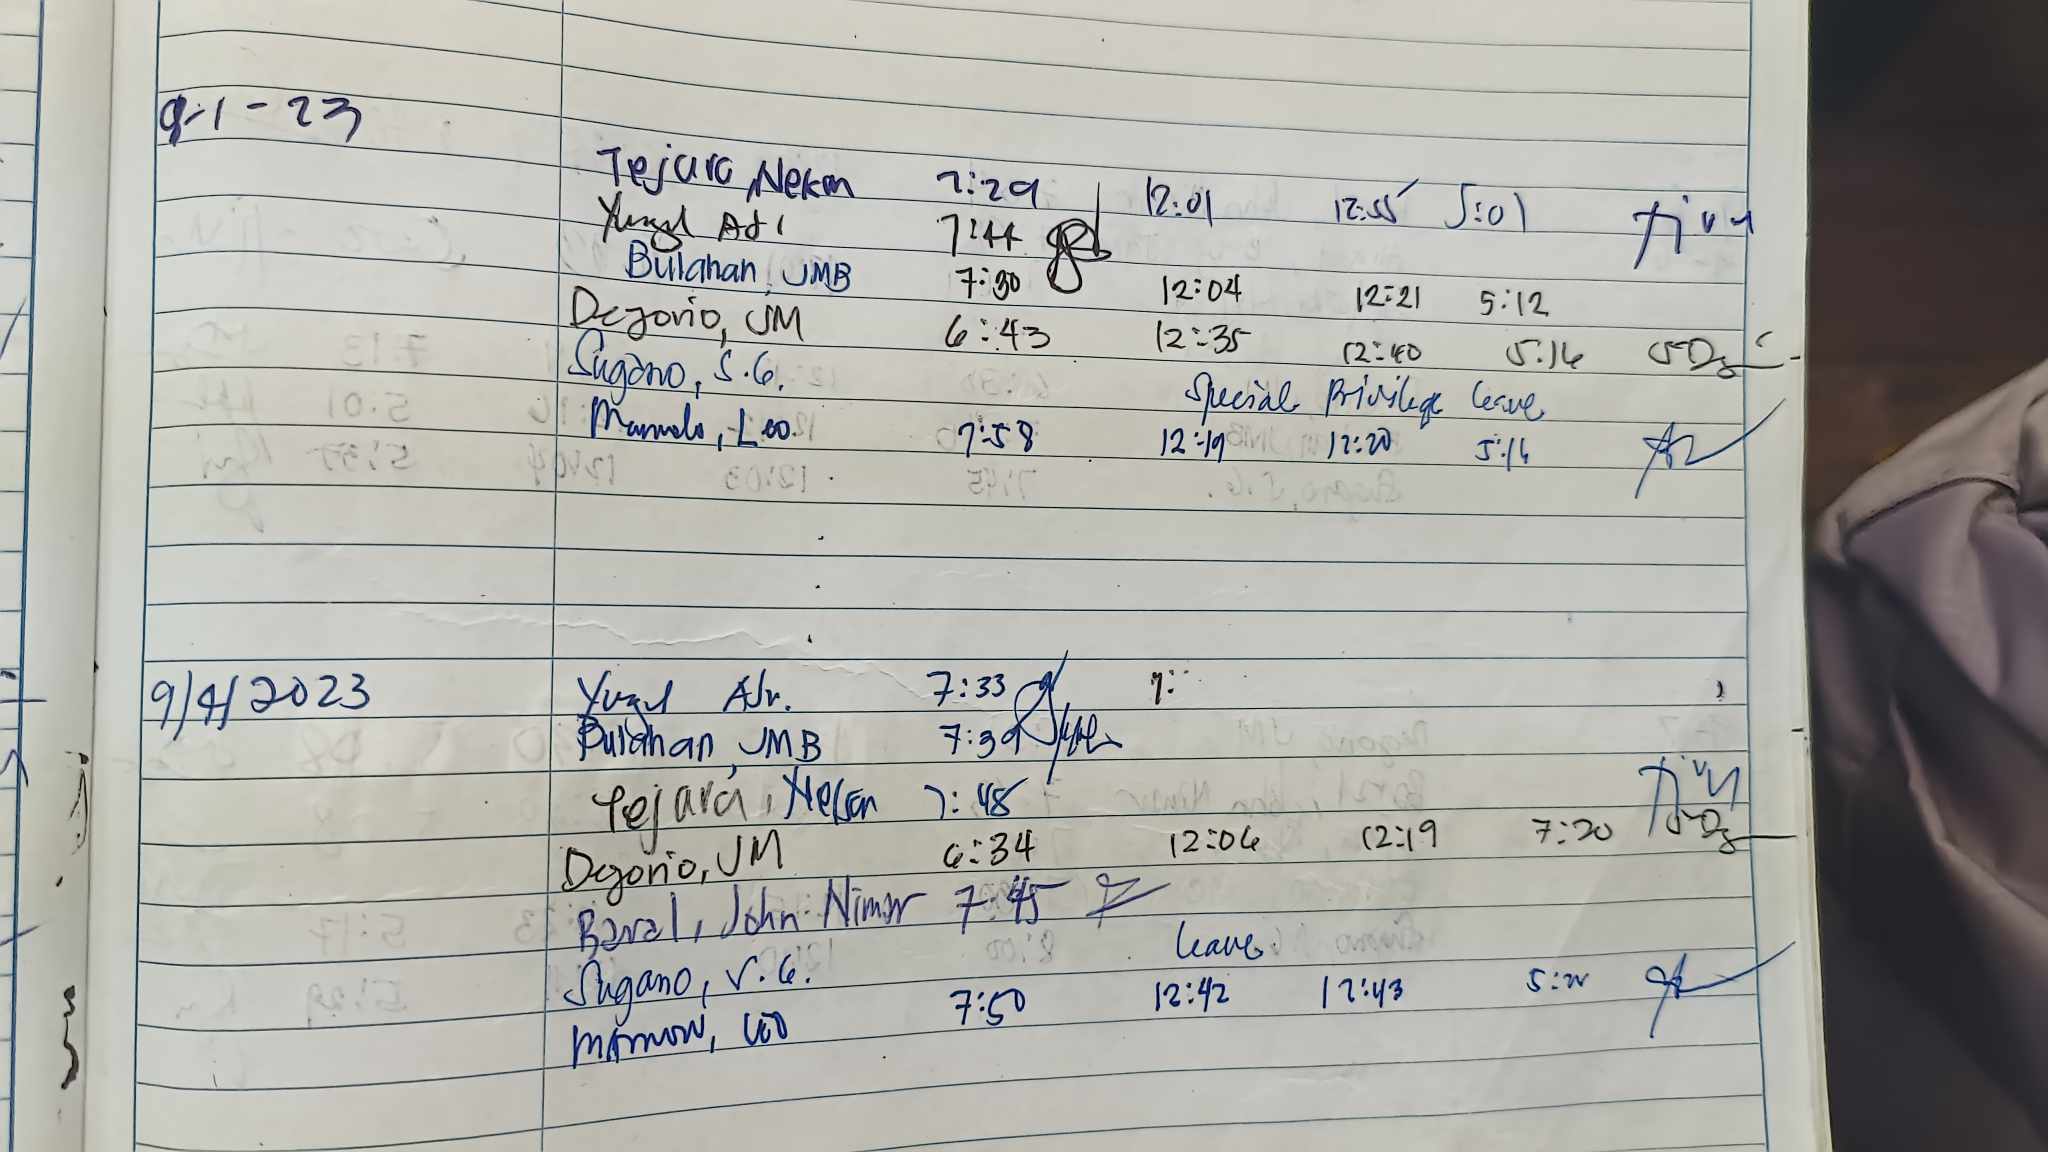 9-1-23
Tejara, Nelson 7:29 12:01 12:55 5:01
7:44
Bulahan, JMB 7:30 12:04 12:21 5:12
Degorio, JM 6:43 12:35 12:40 5:16
Sugano, S.G. Special Privilege leave
Leo 7:58 12:19 12:20 5:16
9/4/2023 7:33 7:
Bulahan, JMB 7:39
Tejara, Nelson 7:48
Degorio, JM 6:34 12:06 12:19 7:20
Baral, John Nimor 7:45
Sugano, S.G. leave
7:50 12:42 12:43